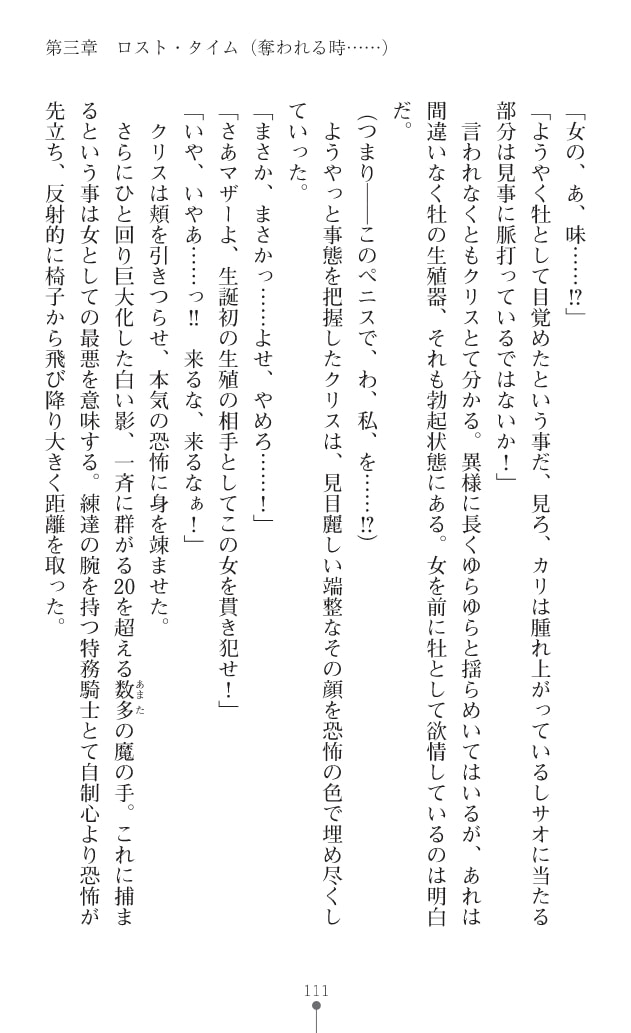 第三章　ロスト・タイム（奪われる時……）
「女の、あ、味……!?」
「ようやく牡として目覚めたという事だ、見ろ、カリは腫れ上がっているしサオに当たる
部分は見事に脈打っているではないか！」
　言われなくともクリスとて分かる。異様に長くゆらゆらと揺らめいてはいるが、あれは
間違いなく牡の生殖器、それも勃起状態にある。女を前に牡として欲情しているのは明白
だ。
（つまり――このペニスで、わ、私、を……!?）
　ようやっと事態を把握したクリスは、見目麗しい端整なその顔を恐怖の色で埋め尽くし
ていった。
「まさか、まさかっ……よせ、やめろ……！」
「さあマザーよ、生誕初の生殖の相手としてこの女を貫き犯せ！」
「いや、いやあ……っ!!　来るな、来るなぁ！」
　クリスは頬を引きつらせ、本気の恐怖に身を竦ませた。
　さらにひと回り巨大化した白い影、一斉に群がる20を超える数多あまたの魔の手。これに捕ま
るという事は女としての最悪を意味する。練達の腕を持つ特務騎士とて自制心より恐怖が
先立ち、反射的に椅子から飛び降り大きく距離を取った。
111